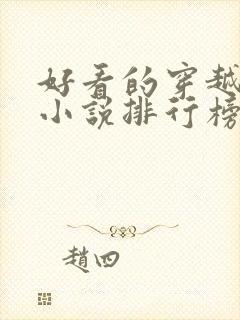 好看的穿越
小说排行榜
趙四